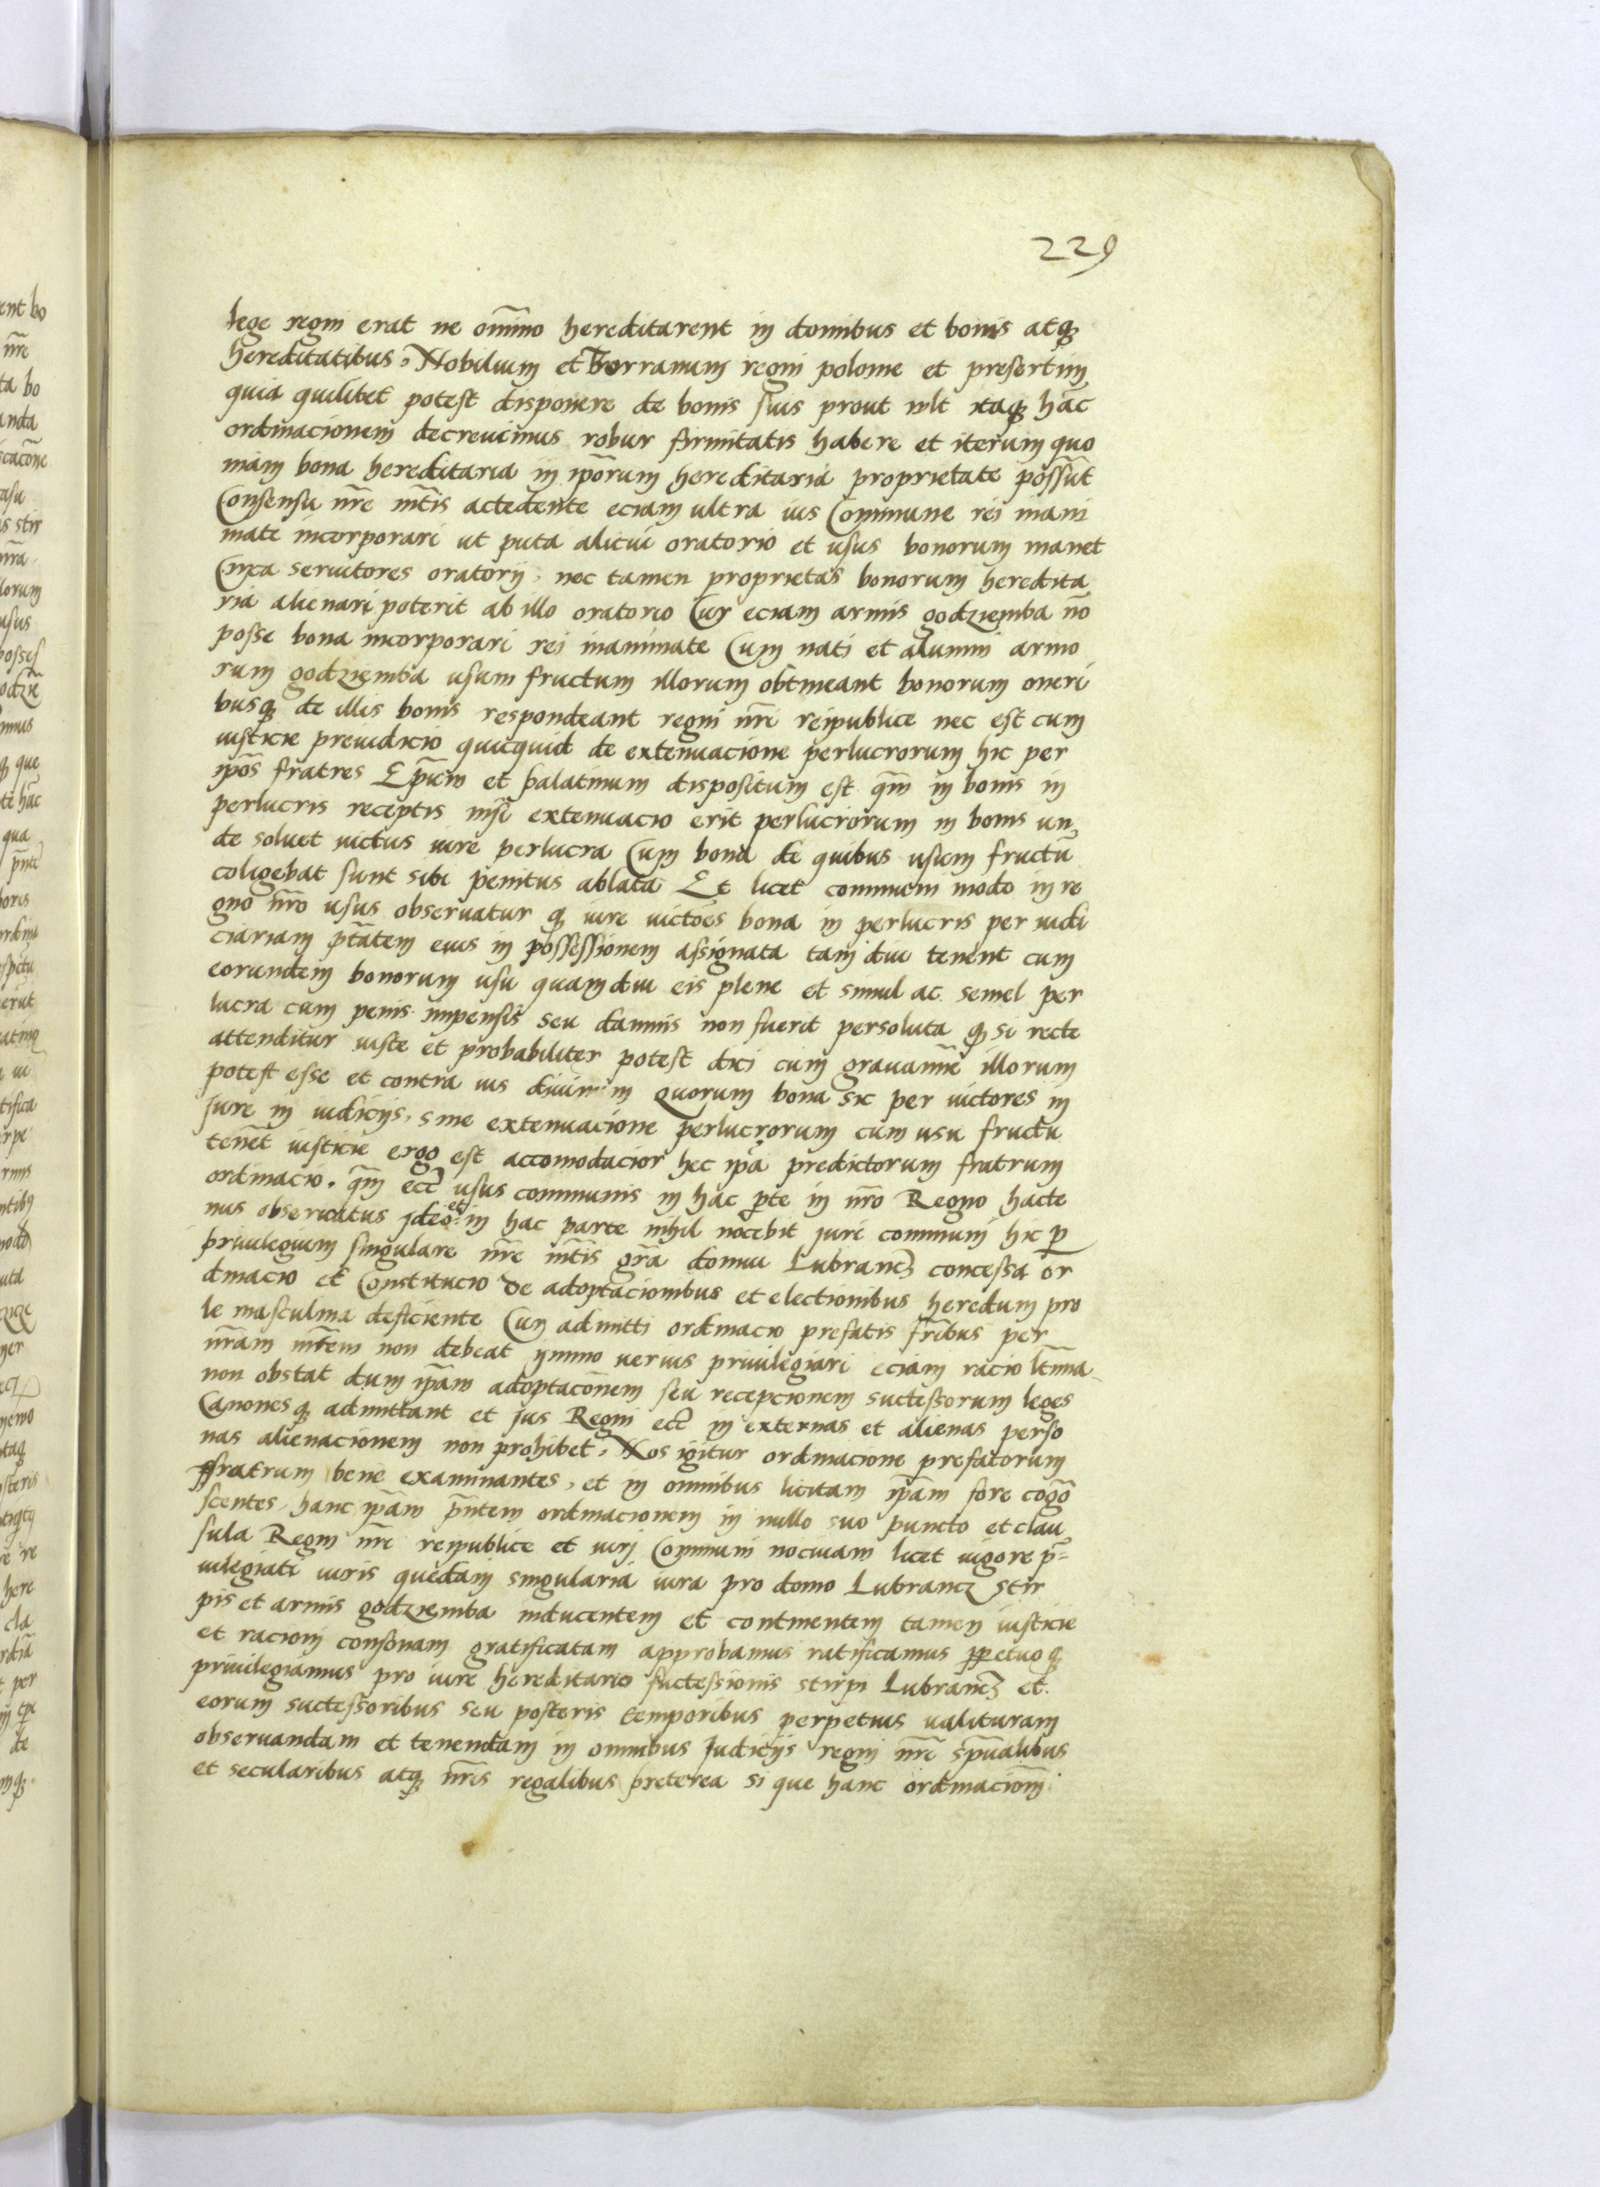 229
lege regni erat ne om̅ino hereditarent in domibus et bonis atq;
hereditatibus. Nobilium et Terranum regni polonie et presertim
quia quilibet potest disponere de bonis suis prout vlt itaq; hāc
ordinacionem decreuimus robur firmitatis habere et iterum quo
niam bona hereditaria in ip̄orum hereditaria proprietate possūt
Consensu nr̄e mt̄is accedente eciam ultra ius Commune rei inani
mate incorporari ut puta alicui oratorio et usus bonorum manet
Circa seruitores oratorij, nec tamen proprietas bonorum heredita
ria alienari poterit ab illo oratorio Cur eciam armis godziemba nō
posse bona incorporari rei inanimate Cum nati et alumni armo
rum godziemba usum fructum illorum obtineant bonorum oneri
busq; de illis bonis respondeant regni nr̄i reipublice nec est cum
iusticie preiudicio quicquid de extenuacione perlucrorum hic per
ip̄os fratres Ep̄um et palatinum dispositum est qm̄ in bonis in
perlucris receptis nisi extenuacio erit perlucrorum in bonis un
de soluet uictus iure perlucra Cum bona de quibus usum fructū
coligebat sunt sibi penitus ablata Et licet communi modo in re
gno nr̄o usus obseruatur q; iure uictōes bona in perlucris per iudi
ciariam p̄tātem eius in possessionem assignata tam diu tenent cum
eorundem bonorum usu quamdiu eis plene et simul ac semel per
lucra cum penis impensis seu damnis non fuerit persoluta q; si recte
attenditur iuste et probabiliter potest dici cum grauamīe illorum
potest esse et contra ius diuinum Quorum bona sic per uictores in
jure in iudicijs, sine extenuacione perlucrorum cum usu fructu
tenēt iusticie ergo est accomodacior hec ip̄a predictorum fratrum
ordinacio. qm̄ etc̄ usus communis in hac pte in nr̄o Regno hacte
nus obseruatus jdeo et in hac parte nihil nocebit juri communi hic p
priuilegium singulare nr̄e mt̄is gr̄a domui Lubrancz concessa or
dinacio et Constitucio de adoptacionibus et electionibus heredum pro
le masculina deficiente Cur admitti ordinacio prefatis fr̄ibus per
nr̄am mt̄em non debeat ymmo uerius priuilegiari eciam racio lt̄ima
non obstat dum ip̄am adoptacōnem seu recepcionem successorum leges
Canonesq; admittant et jus Regni etc̄ in externas et alienas perso
nas alienacionem non prohibet. Nos igitur ordinacione prefatorum
ffratrum bene examinantes, et in omnibus licitam ip̄am fore cogō
scentes, hanc ip̄am p̄ntem ordinacionem in nullo suo puncto et clau
sula Regni nr̄e reipublice et iuri Communi nociuam licet uigore p̄=
uilegiati iuris quedam singularia iura pro domo Lubrancz stir
pis et armis godziemba inducentem et continentem tamen iusticie
et racioni consonam gratificatam approbamus ratificamus ppetuoq;
priuilegiamus pro iure hereditario successionis stirpi Lubrancz et
eorum successoribus seu posteris temporibus perpetuis ualituram
obseruandam et tenendam in omnibus Judicijs regni nr̄i sp̄ualibus
et secularibus atq; nr̄is regalibus preterea si que hanc ordinacionē